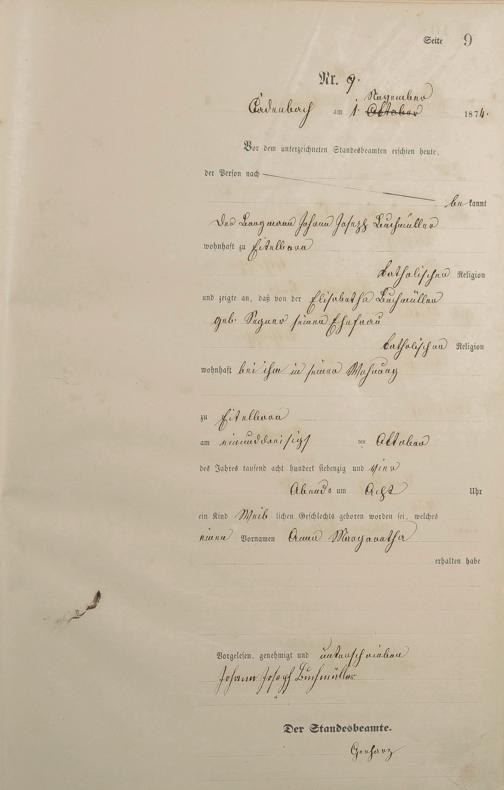 Seite 9
Nr. 9.
November
Cadenbach am 1. Oktober 1874.
Vor dem unterzeichneten Standesbeamten erschien heute,
der Person nach
be kannt
Der Bergmann Johann Joseph Buchmüller
wohnhaft zu Eitelborn
katholischen Religion
und zeigte an, daß von der Elisabetha Buchmüller
geb. seiner Ehefrau
katholischen Religion
wohnhaft bei ihm in seiner Wohnung
zu Eitelborn
am einunddreisigst ten Oktober
des Jahres tausend acht hundert siebenzig und vier
Abends um Acht Uhr
ein Kind Weib lichen Geschlechts geboren worden sei, welches
einen Vornamen Anna Margaretha
erhalten habe
Vorgelesen, genehmigt und unterschrieben
Johann Joseph Buchmüller
Der Standesbeamte.
Gerharz